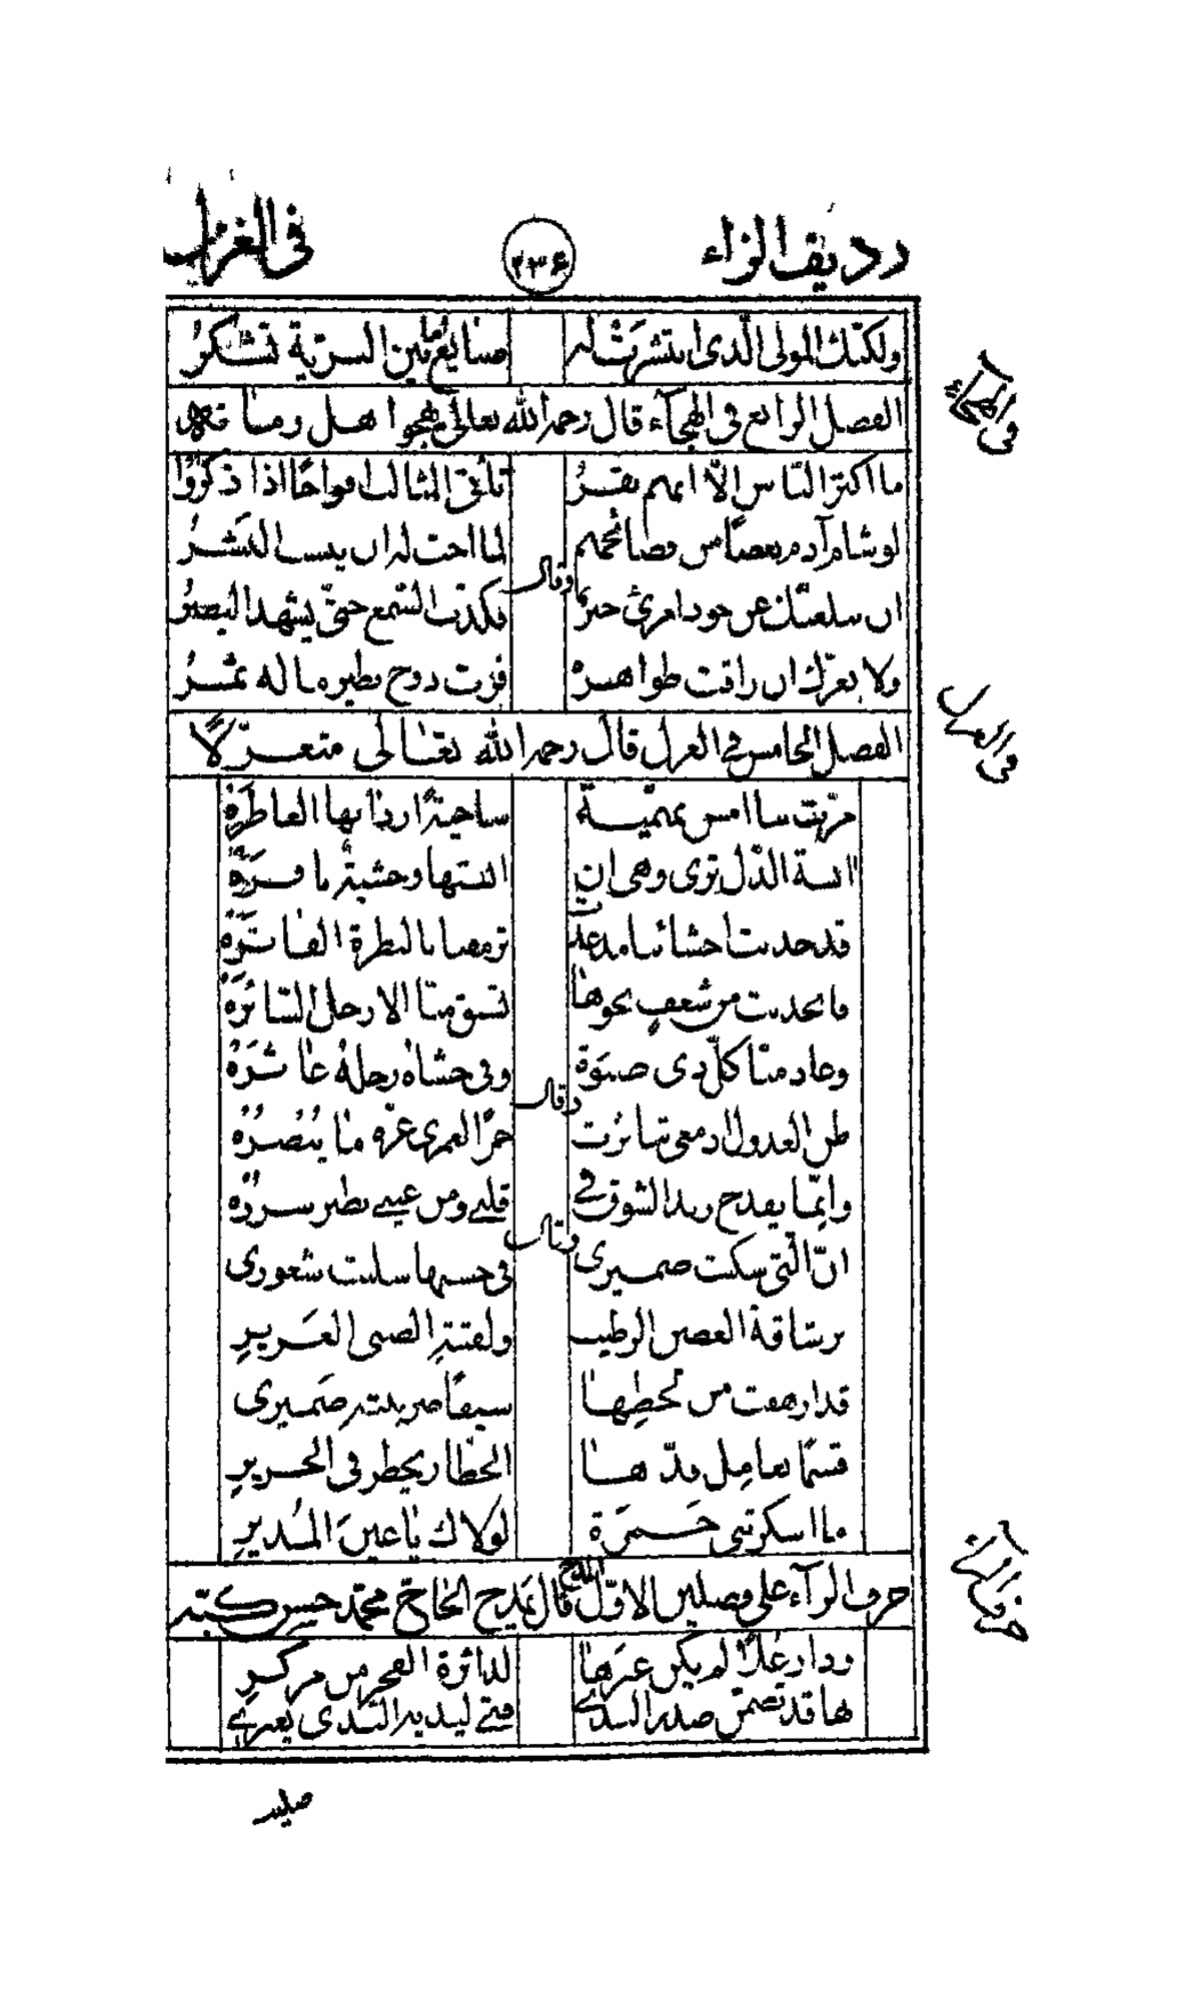 رديف الراء
٢٣۶
فى الغزل
ولكنك المولى الذى انتشرت له صنايع ما بين البرية تشكر
فى الهجاء
الفصل الرابع فى الهجآء قال رحمه الله تعالى يهجوا اهل زمانه
ما اكثر الناس الا انهم بقر تأتى المثالب افواجًا اذا ذكروا
لو شام آدم بعضًا من فضائحهم لما احب له ان ينسب البشر
وقال
ان سلعتك عن جود امرئ خبرًا فكذب السمع حتى يشهد البصر
ولا يغرك ان راقت ظواهره فرب دوح نضير ما له ثمر
فى الغزل
الفصل الخامس فى الغزل قال رحمه الله تعالى متغزلًا
مرت بنا امس ساحبة اردانها العاطره
انسة الدل ترى وهى ان انستها وحشية نافره
قد جذبت احشائنا مذ غدت ترمقنا بالنظرة الفاتره
فانجذبت من شغف نحوها تسبق منا الارجل السائره
وعاد منا كل ذى صبوة وفى حشاه رجله عاثره
وقال
ظن العذول ادمعى تناثرت حمرًا لعمرى غره ما ينصره
وانما يقدح زند الشوق فى قلبى ومن عينى يطير شرره
وقال
ان التى سكنت ضميرى فى حسنها سلبت شعورى
برشاقة الغصن الرطيب ولفتة الظبى الغرير
قد ارهفت من لحظها سيفًا ضريبته ضميرى
قسمًا بعامل قدها الخطار يخطر فى الحرير
ما اسكرتنى خمرة لولاك يا عين المدير
حرف الزآء
حرف الزآء على فصلين الاول فى المدح قال يمدح الحاج محمد حسن كبه
ودار علًا لم يكن غيرها لدائرة الفخر من مركز
بها قد تضمن صدر الندى فتى ليديه الندى يعتزى